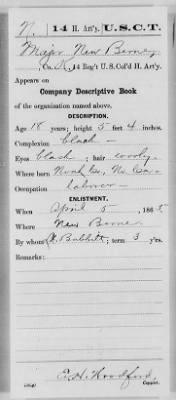 N. 14 H. Art'y. U.S.C.T.
Major New Berney
Co. , 14 Reg't U.S. Col'd H. Art'y.
Appears on
Company Descriptive Book
of the organization named above.
DESCRIPTION.
Age 18 years; height 5 feet 4 inches.
Complexion black
Eyes black ; hair wooly
Where born No. Ca
Occupation laborer
ENLISTMENT.
When April 5 , 1865
Where New Berne
By whom Babbitt ; term 3 y'rs.
Remarks:
A.H. Woodford
Copyist.